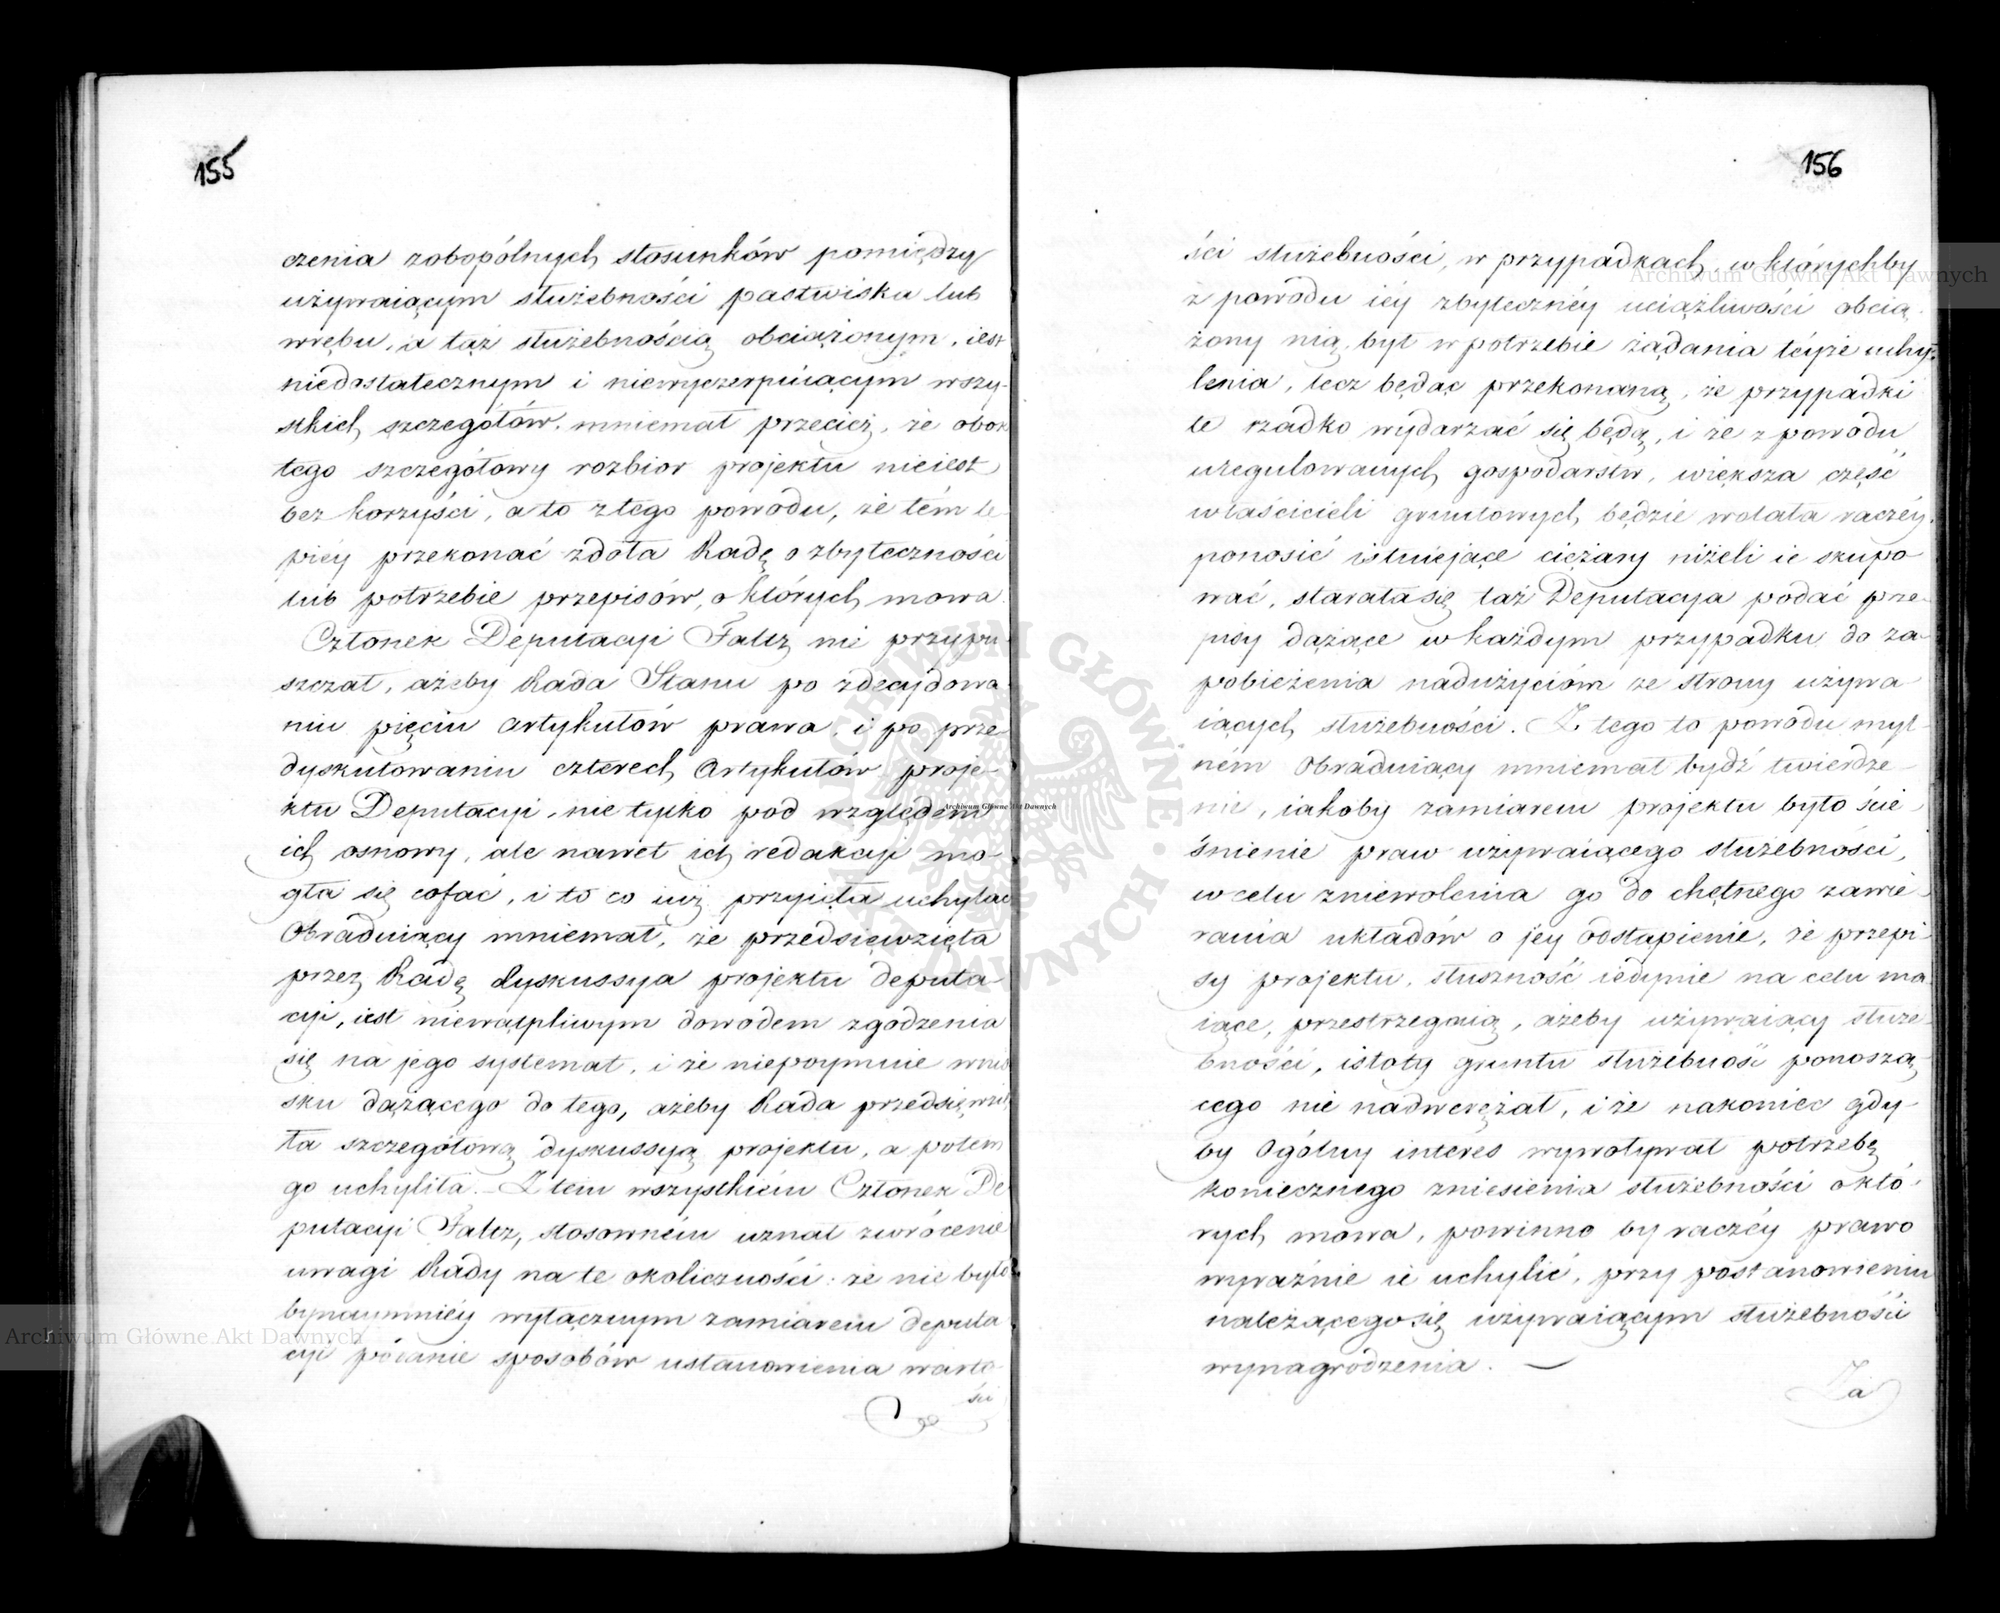 155
czenia zobopólnych stosunków pomiędzy
używaiącym służebności pastwiska lub
wrębu, a taż służebnością obciążonym, iest
niedostatecznym i niewyczerpuiącym wszy-
stkich szczegółów, mniemał przecież, że obok
tego szczegółowy rozbior projektu nieiest
bez korzyści, a to z tego powodu, że tém le-
piéy przekonać zdoła Radę o zbyteczności
lub potrzebie przepisów, o których mowa.
Członek Deputacyi Faltz nie przypu-
szczał, ażeby Rada Stanu po zdecydowa-
niu pięciu artykułów prawa, i po prze-
dyskutowaniu czterech Artykułów proje-
ktu Deputacyi, nie tylko pod względem
ich osnowy, ale nawet ich redakcyi mo-
gła się cofać, i to co iuż przyięła uchylać
Obraduiący mniemał, że przedsięwzięta
przez Radę dyskussya projektu deputa-
cyi, iest niewątpliwym dowodem zgodzenia
się na jego systemat, i że niepoymuie wnio-
sku dążącego do tego, ażeby Rada przedsięwzię-
ła szczegółową dyskussyą projektu, a potem
go uchyliła. – Z tém wszystkiém Członek De-
putacyi Faltz, stosowném uznał zwrócenie
uwagi Rady na te okoliczności: że nie było
bynaymniéy wyłącznym zamiarem deputa-
cyi podanie sposobów ustanowienia warto-
ści
156
ści służebności, w przypadkach w którychby
z powodu iéy zbytecznéy uciążliwości obcią-
żony nią, był w potrzebie żądania téyże uchy-
lenia, lecz będąc przekonaną, że przypadki
te rzadko wydarzać się będą, i że z powodu
uregulowanych gospodarstw, większa część
właścicieli gruntowych będzie wolała raczéy
ponosić istniejące ciężary niżeli ie skupo-
wać, starała się taż Deputacya podać prze-
pisy dążące w każdym przypadku do za-
pobieżenia nadużyciom ze strony używa-
iących służebności. Z tego to powodu myl-
ném Obraduiący mniemał bydź twierdze-
nie, iakoby zamiarem projektu było ście-
śnienie praw używaiącego służebności,
w celu zniewolenia go do chętnego zawie-
rania układów o jey odstąpienie, że przepi-
sy projektu, słuszność iedynie na celu ma-
iące, przestrzegaią, ażeby używaiący służe-
bności, istoty gruntu służebność ponoszą-
cego nie nadwerężał, i że nakoniec gdy-
by Ogólny interes wywoływał potrzebę
koniecznego zniesienia służebności o któ-
rych mowa, powinno by raczéy prawo
wyraźnie ie uchylić, przy postanowieniu
należącego się używaiącym służebności
wynagrodzenia. —
Za
Archiwum Główne Akt Dawnych
Archiwum Główne Akt Dawnych
Archiwum Główne Akt Dawnych
ARCHIWUM GŁÓWNE AKT DAWNYCH